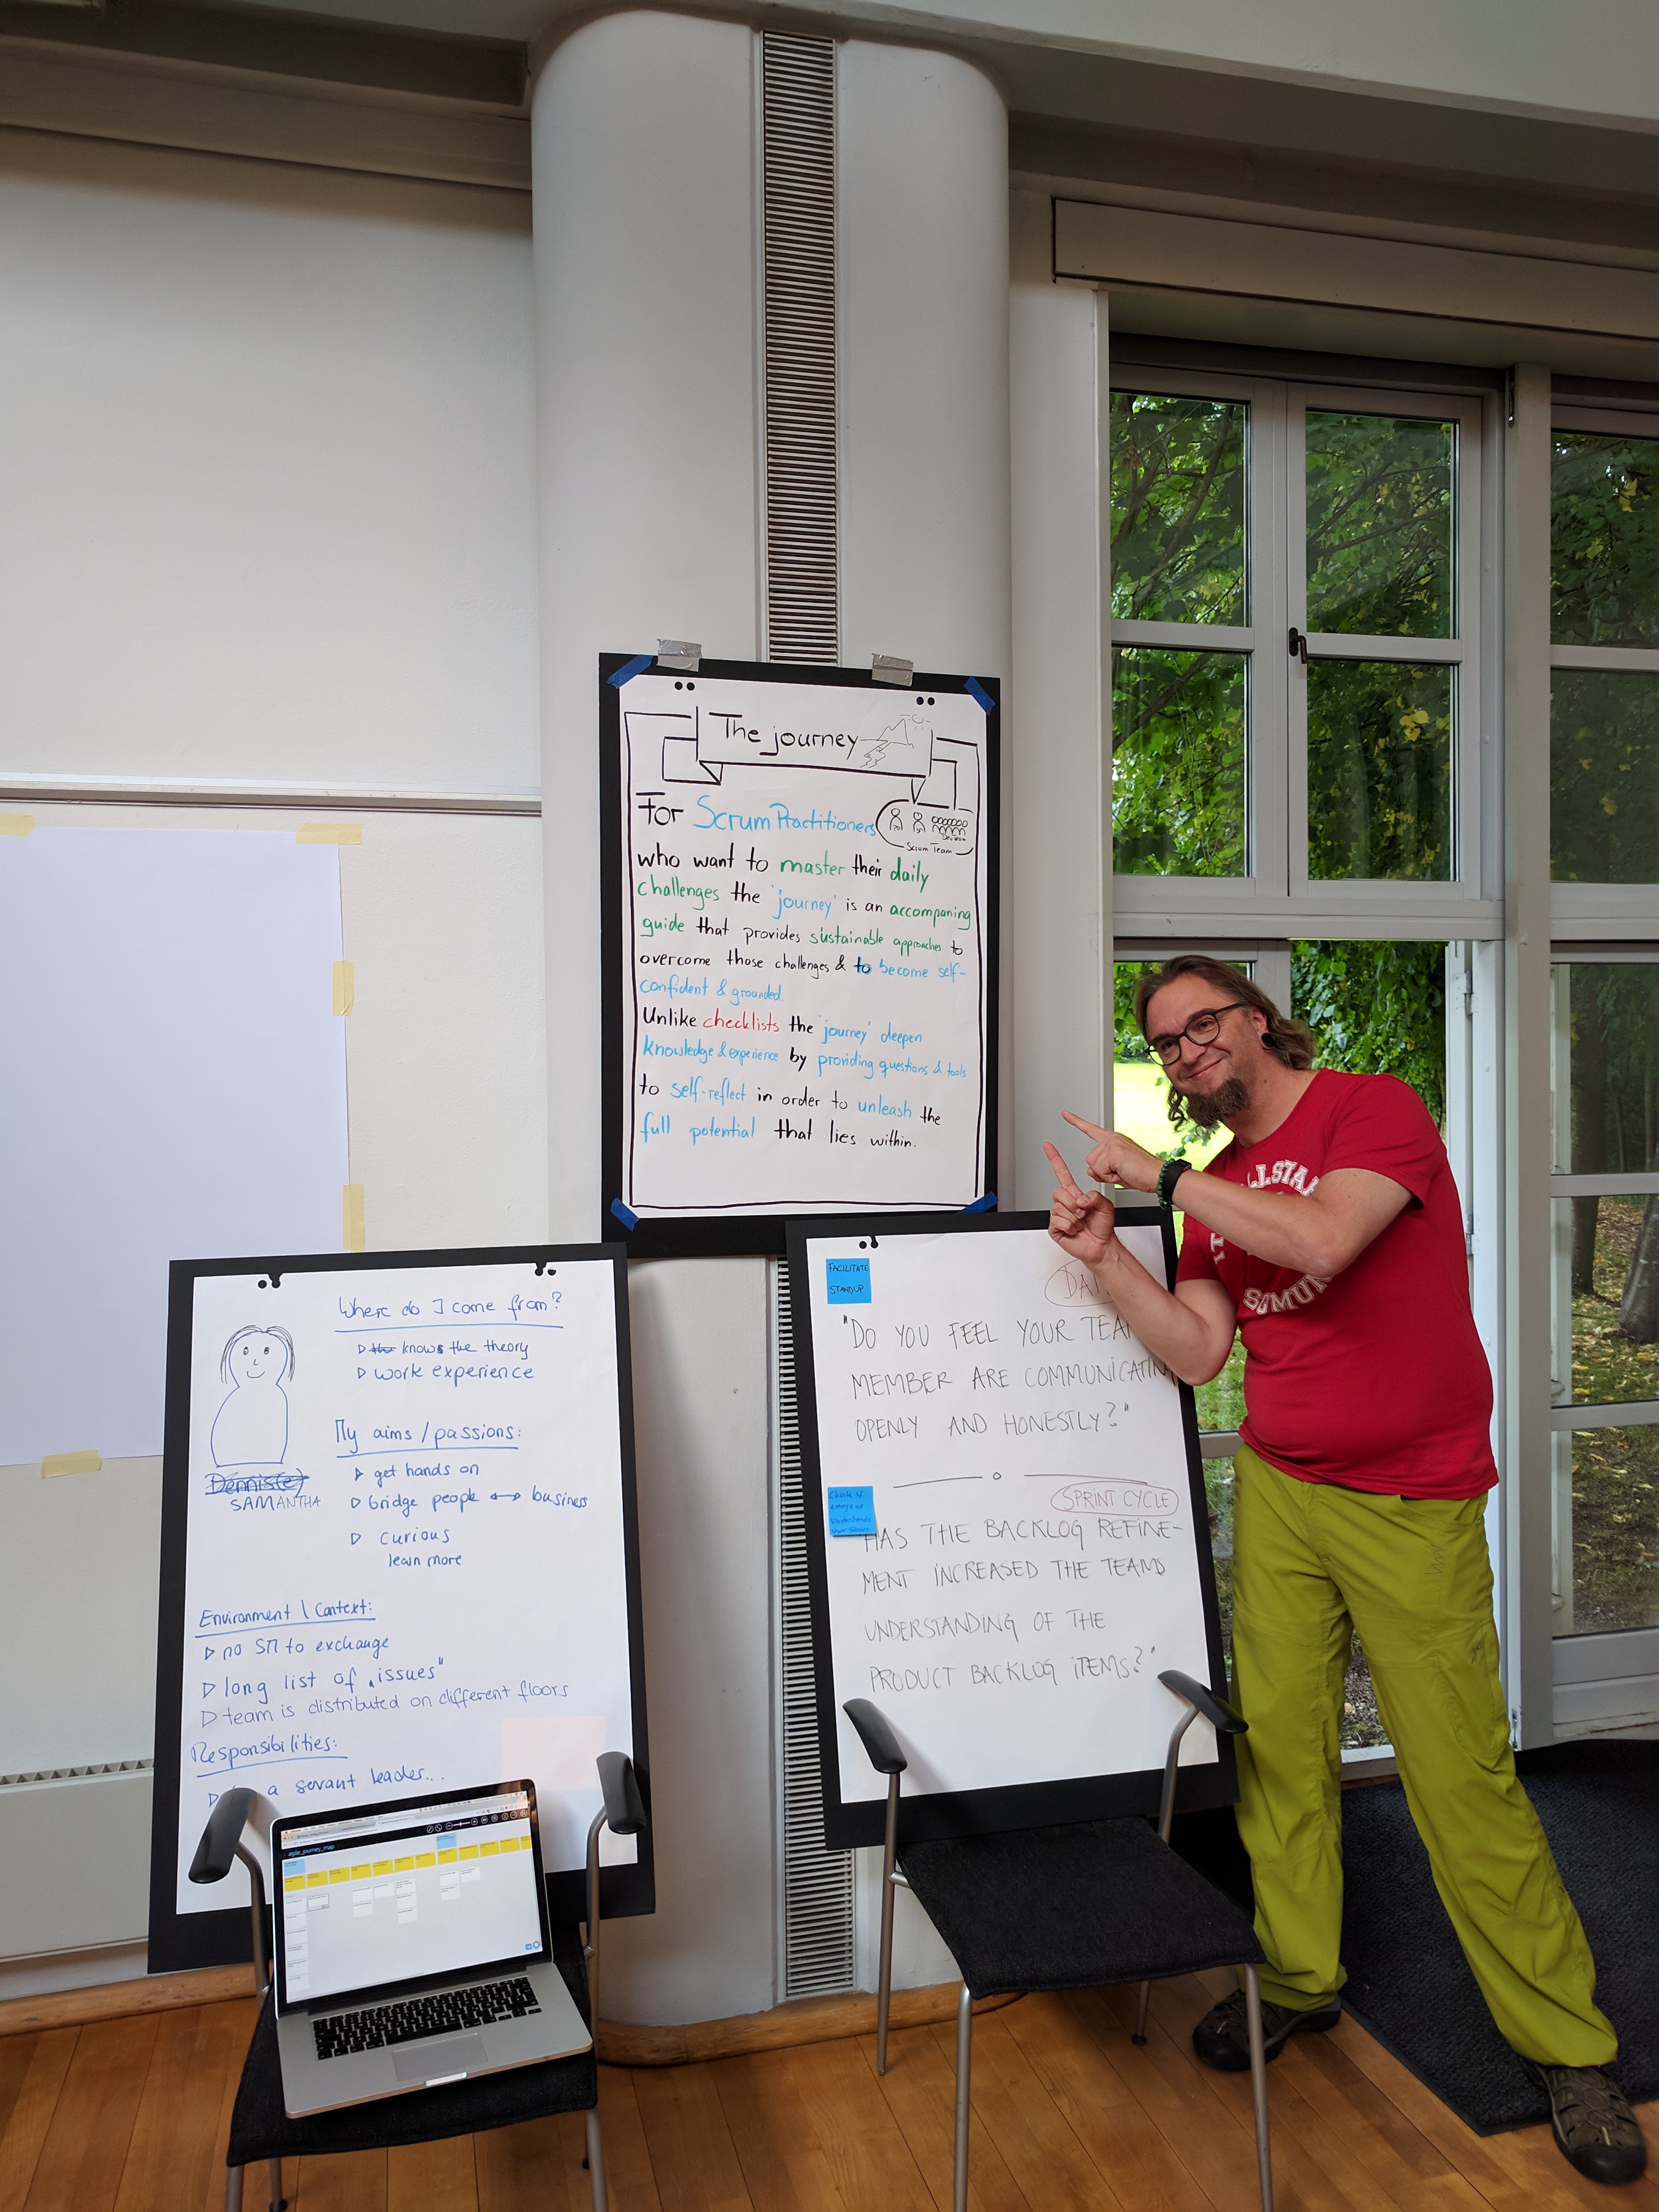 The journey
For Scrum Practitioners
Scrum Team
who want to master their daily
challenges the 'journey' is an accompaning
guide that provides sustainable approaches to
overcome those challenges & to become self-
confident & grounded.
Unlike checklists the 'journey' deepen
knowledge & experience by providing questions & tools
to self-reflect in order to unleash the
full potential that lies within.
Where do I come from?
knows the theory
work experience
My aims / passions:
get hands on
bridge people ↔ business
curious
learn more
Dennis(e)
SAMANTHA
Environment / Context:
no SM to exchange
long list of „issues"
team is distributed on different floors
Responsibilities:
a servant leader...
agile_journey_map
FACILITATE
STANDUP
"DO YOU FEEL YOUR TEAM
MEMBER ARE COMMUNICATING
OPENLY AND HONESTLY?"
Check if
everyone
understands
user stories
SPRINT CYCLE
HAS THE BACKLOG REFINE-
MENT INCREASED THE TEAMS
UNDERSTANDING OF THE
PRODUCT BACKLOG ITEMS?"